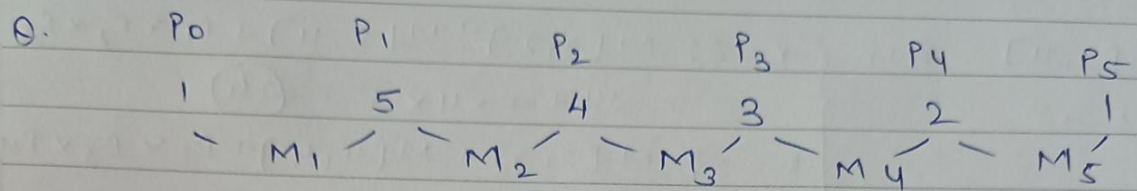 Q. P0 P1 P2 P3 P4 P5
1 5 4 3 2 1
M1 M2 M3 M4 M5